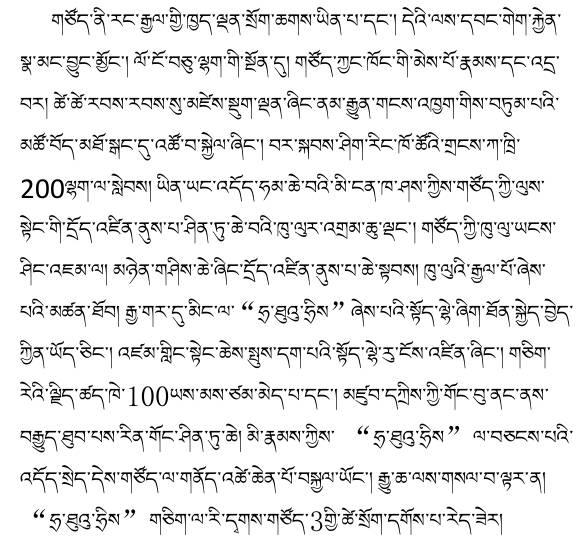 གཙོད་ནི་རང་རྒྱལ་གྱི་ཁྱད་ལྡན་སྲོག་ཆགས་ཡིན་པ་དང་། དེའི་ལས་དབང་གེག་རྐྱེན་
སྣ་མང་བྱུང་མྱོང་། ལོ་ངོ་བཅུ་ལྷག་གི་སྔོན་དུ། གཙོད་ཀྱང་ཁོང་གི་མེས་པོ་རྣམས་དང་འདྲ་
བར། ཚེ་ཚེ་རབས་རབས་སུ་མཛེས་སྡུག་ལྡན་ཞིང་ནམ་རྒྱུན་གངས་འཁྱག་གིས་བཏུམ་པའི་
མཚོ་བོད་མཐོ་སྒང་དུ་འཚོ་བ་སྐྱེལ་ཞིང་། བར་སྐབས་ཤིག་རིང་ཁོ་ཚོའི་གྲངས་ཀ་ཁྲི་
200ལྷག་ལ་སླེབས། ཡིན་ཡང་འདོད་ཧམ་ཆེ་བའི་མི་ངན་ཁ་ཤས་ཀྱིས་གཙོད་ཀྱི་ལུས་
སྟེང་གི་དྲོད་འཛིན་ནུས་པ་ཤིན་ཏུ་ཆེ་བའི་ཁུ་ལུར་འགྲམ་ཆུ་ལྡང་། གཙོད་ཀྱི་ཁུ་ལུ་ཡངས་
ཤིང་འཇམ་ལ། མཉེན་གཤིས་ཆེ་ཞིང་དྲོད་འཛིན་ནུས་པ་ཆེ་སྟབས། ཁུ་ལུའི་རྒྱལ་པོ་ཞེས་
པའི་མཚན་ཐོབ། རྒྱ་གར་དུ་མིང་ལ་“ཧྲ་ཐུའུ་ཧྲིས”ཞེས་པའི་སྟོད་ལྷེ་ཞིག་ཐོན་སྐྱེད་བྱེད་
ཀྱིན་ཡོད་ཅིང་། འཛམ་གླིང་སྟེང་ཆེས་སྤུས་དག་པའི་སྟོད་ལྷེ་རུ་ངོས་འཛིན་ཞིང་། གཅིག་
རེའི་ལྗིད་ཚད་ཁེ་100ཡས་མས་ཙམ་མེད་པ་དང་། མཛུབ་དཀྲིས་ཀྱི་གོང་བུ་ནང་ནས་
བརྒྱུད་ཐུབ་པས་རིན་གོང་ཤིན་ཏུ་ཆེ། མི་རྣམས་ཀྱིས་ “ཧྲ་ཐུའུ་ཧྲིས” ལ་བཅངས་པའི་
འདོད་སྲེད་དེས་གཙོད་ལ་གནོད་འཚེ་ཆེན་པོ་བསྐྱལ་ཡོང་། རྒྱུ་ཆ་ལས་གསལ་བ་ལྟར་ན།
“ཧྲ་ཐུའུ་ཧྲིས” གཅིག་ལ་རི་དྭགས་གཙོད་3གྱི་ཚེ་སྲོག་དགོས་པ་རེད་ཟེར།